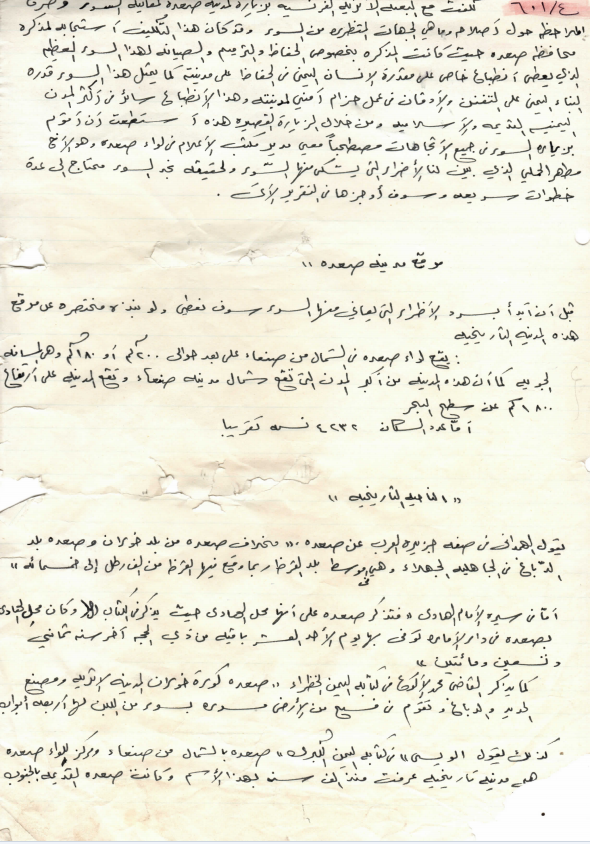 ٦٠١/٤
كلفت مع البعثه الأثريه الفرنسيه بزيارة لمدينة صعده لمعاينة السور و
حول وماهي لجهات المتضرره من السور وقد كان هذا التكليف استجابه لمذكرة
محافظ صعده حيث كانت المذكره بخصوص الحفاظ والترميم والصيانه لهذا السور العظيم
الذي يعطي انطباع خاص على مقدرة الانسان اليمني في الحفاظ على مدينته كما يمثل هذا السور قدره
البناء اليمني على التفنن والإتقان في عمل حزام أمني لمدينته وهذا الأنطباع سائر في أكثر المدن
اليمنيه القديمه والأسلاميه ومن خلال الزيارة القصيره هذه أستطعت أن أقوم
بزيارة السور في جميع الأتجاهات مصطحباً معي مدير مكتب الأعلام في لواء صعده وهو الأخ
مطهر الذي بين لنا الأضرار التي يشتكي منها السور ولحقيقه نجد السور محتاج إلى عدة
خطوات سريعه وسوف أوجزها في التقرير الآتي .
موقع مدينه صعده ؛؛
قبل أن أبدأ بسرد الأظرار التي يعاني منها السور سوف نعطي ولو نبذه مختصره عن موقع
هذه المدينه التاريخيه
: يقع لواء صعده في الشمال من صنعاء على بعد حوالي ٢٠٠كم أو ١٨٠كم وهي المسافه
الجويه كما أن هذه المدينه من أكبر المدن التي تقع شمال مدينه صنعاء وتقع المدينه على أرتفاع
١٨٠٠كم عن سطح البحر
أما عدد السكان ٤٢٣٢ نسمه تقريبا
" الناحيه التاريخيه "
يقول الهمداني في صفه جزيره العرب عن صعده ،" مخلاف صعده من بلد خولان وصعده بلد
الدباغ في الجاهليه الجهلاء وهي في وسط بلد القرظ ربما وقع فيها القرظ من ألف رطل إلى خمسمائه "
أما في سيره الأمام الهادي " فتذكر صعده على أنها محل الهادي حيث يذكر في الكتاب وكان محل الهادي
بصعده في دار الأماره توفى بها يوم الأحد لعشر باقيه من ذي الحجه آخر سنه ثماني
وتسعين ومائتين "
كما يذكر القاضي محمد الأكوع في كتابه اليمن الخظراء " صعده كورة خولان المدينه الأثريه ومصنع
الحديد والدباغ وتقوم في فسيح من الأرض مسوره بسور من اللبن لها أربعه أبواب
كذلك يقول الويسي " في كتابه اليمن الكبرى " صعده بالشمال من صنعاء ومركز لواء صعده
هي مدينه تاريخيه عرفت منذ ألف سنه بهذا الأسم وكانت صعده القديمه بالجنوب